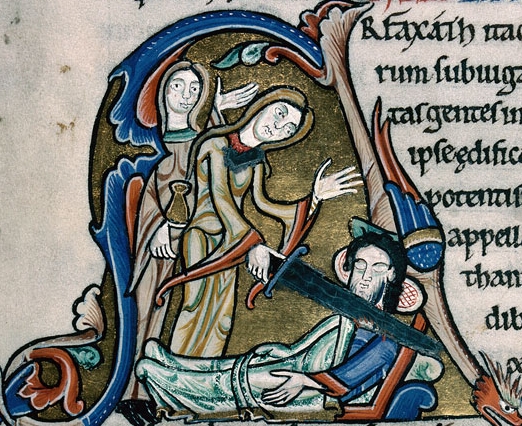 RFAXATH itaq
rum subiuga
tas gentes im
ipse ędifica
potentis
appell
than
dib